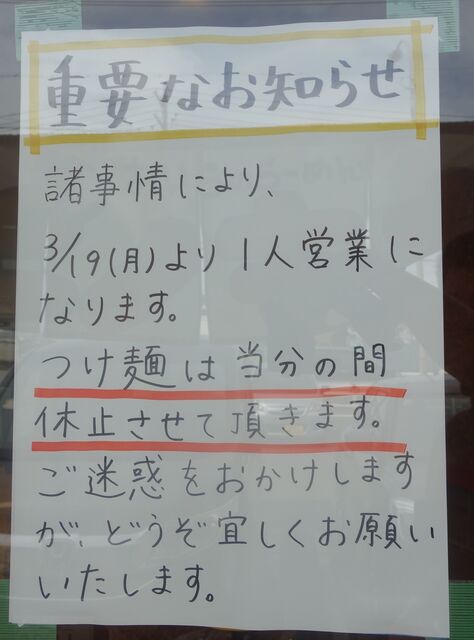 重要なお知らせ
諸事情により、
3/19(月)より1人営業に
なります。
つけ麺は当分の間
休止させて頂きます。
ご迷惑をおかけします
が、どうぞ宜しくお願い
いたします。